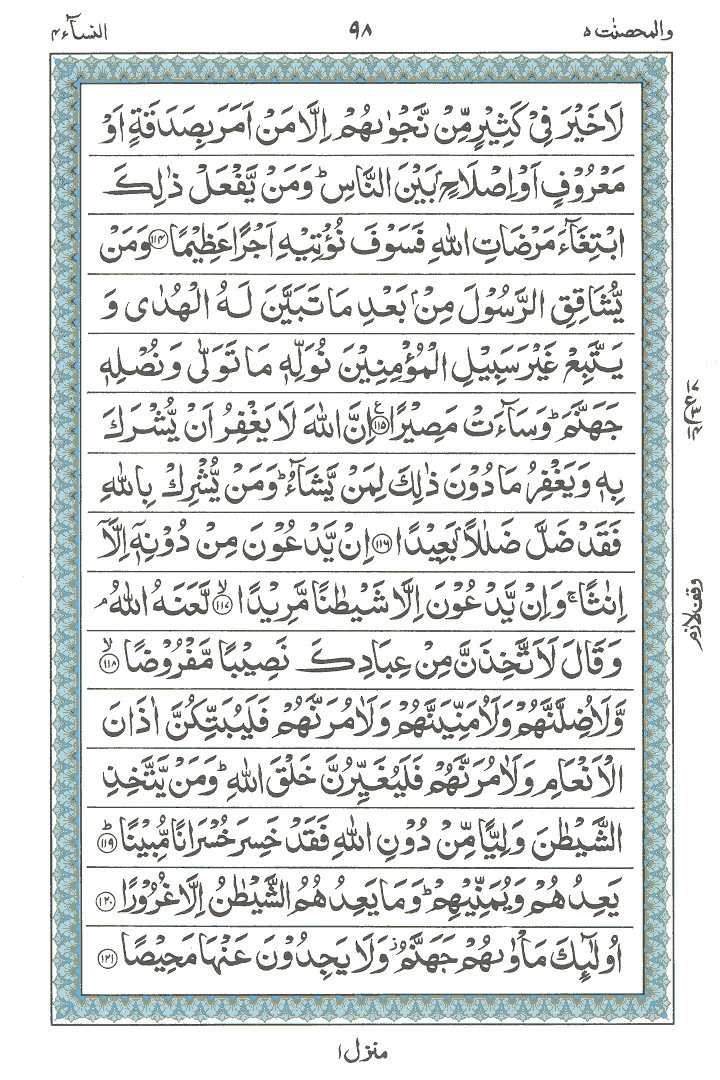 والمحصنٰت ۵ ۹۸ النسآء ۴
لَا خَيْرَ فِيْ كَثِيْرٍ مِّنْ نَّجْوٰىهُمْ اِلَّا مَنْ اَمَرَ بِصَدَقَةٍ اَوْ
مَعْرُوْفٍ اَوْ اِصْلَاحٍۭ بَيْنَ النَّاسِ ؕ وَمَنْ يَّفْعَلْ ذٰلِكَ
ابْتِغَآءَ مَرْضَاتِ اللّٰهِ فَسَوْفَ نُؤْتِيْهِ اَجْرًا عَظِيْمًا ﴿۱۱۴﴾ وَمَنْ
يُّشَاقِقِ الرَّسُوْلَ مِنْۢ بَعْدِ مَا تَبَيَّنَ لَهُ الْهُدٰى وَ
يَتَّبِعْ غَيْرَ سَبِيْلِ الْمُؤْمِنِيْنَ نُوَلِّهٖ مَا تَوَلّٰى وَنُصْلِهٖ
جَهَنَّمَ ؕ وَسَآءَتْ مَصِيْرًا ﴿۱۱۵﴾ ع اِنَّ اللّٰهَ لَا يَغْفِرُ اَنْ يُّشْرَكَ
بِهٖ وَيَغْفِرُ مَا دُوْنَ ذٰلِكَ لِمَنْ يَّشَآءُ ؕ وَمَنْ يُّشْرِكْ بِاللّٰهِ
فَقَدْ ضَلَّ ضَلٰلًاۢ بَعِيْدًا ﴿۱۱۶﴾ اِنْ يَّدْعُوْنَ مِنْ دُوْنِهٖۤ اِلَّاۤ
اِنٰثًا ۚ وَاِنْ يَّدْعُوْنَ اِلَّا شَيْطٰنًا مَّرِيْدًا ﴿۱۱۷﴾ ۙ لَّعَنَهُ اللّٰهُ ۘ
وَقَالَ لَاَتَّخِذَنَّ مِنْ عِبَادِكَ نَصِيْبًا مَّفْرُوْضًا ﴿۱۱۸﴾ ۙ
وَّلَاُضِلَّنَّهُمْ وَلَاُمَنِّيَنَّهُمْ وَلَاٰمُرَنَّهُمْ فَلَيُبَتِّكُنَّ اٰذَانَ
الْاَنْعَامِ وَلَاٰمُرَنَّهُمْ فَلَيُغَيِّرُنَّ خَلْقَ اللّٰهِ ؕ وَمَنْ يَّتَّخِذِ
الشَّيْطٰنَ وَلِيًّا مِّنْ دُوْنِ اللّٰهِ فَقَدْ خَسِرَ خُسْرَانًا مُّبِيْنًا ﴿۱۱۹﴾ ؕ
يَعِدُهُمْ وَيُمَنِّيْهِمْ ؕ وَمَا يَعِدُهُمُ الشَّيْطٰنُ اِلَّا غُرُوْرًا ﴿۱۲۰﴾
اُولٰٓئِكَ مَاْوٰىهُمْ جَهَنَّمُ ؗ وَلَا يَجِدُوْنَ عَنْهَا مَحِيْصًا ﴿۱۲۱﴾
وقف لازم
منزل ۱